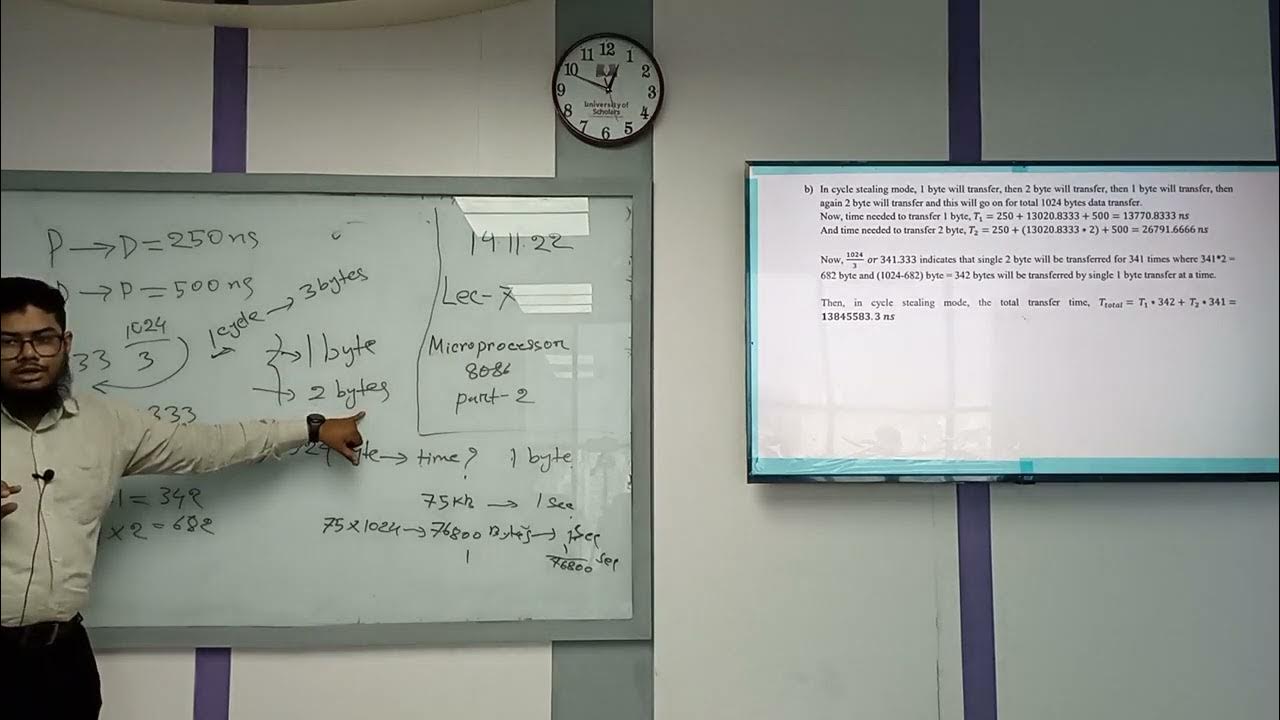 12
11 1
10 2
9 3
8 4
7 5
6
University of
Scholars
P → D = 250 ns
→ P = 500 ns
1 cycle → 3 bytes
1024
3
33
→ 1 byte
→ 2 bytes
333
→ time? 1 byte
1 = 342
× 2 = 682
75 KB → 1 sec
75 × 1024 → 76800 Bytes → 1 sec
1
1
76800 sec
14.11.22
Lec-7
Microprocessor
8086
part-2
b) In cycle stealing mode, 1 byte will transfer, then 2 byte will transfer, then 1 byte will transfer, then
again 2 byte will transfer and this will go on for total 1024 bytes data transfer.
Now, time needed to transfer 1 byte, T₁ = 250 + 13020.8333 + 500 = 13770.8333 ns
And time needed to transfer 2 byte, T₂ = 250 + (13020.8333 * 2) + 500 = 26791.6666 ns
Now, 1024/3 or 341.333 indicates that single 2 byte will be transferred for 341 times where 341*2 =
682 byte and (1024-682) byte = 342 bytes will be transferred by single 1 byte transfer at a time.
Then, in cycle stealing mode, the total transfer time, T_total = T₁ * 342 + T₂ * 341 =
13845583.3 ns